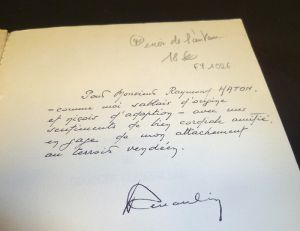 envoi de l'auteur
18 fr
FY 1026
Pour Monsieur Raymond HATON
- comme moi sablais d'origine
et niçois d'adoption - avec mes
sentiments de bien cordiale amitié,
en gage de mon attachement
au terroir vendéen.